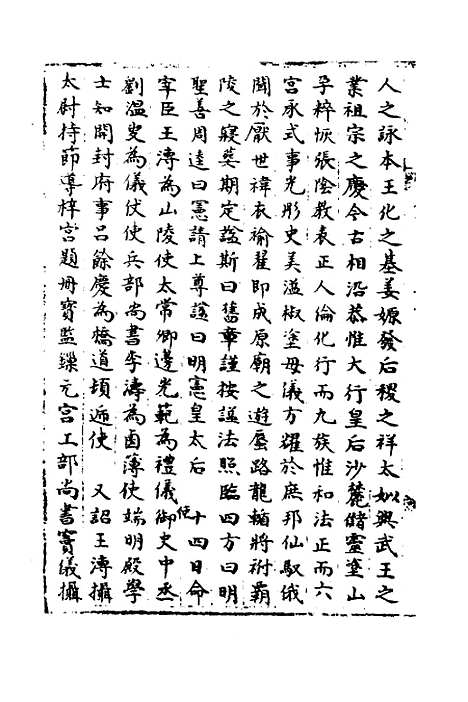 人之詠本王化之基姜嫄發后稷之祥太姒興武王之
業祖宗之慶今古相沿恭惟大行皇后沙麓儲靈塗山
孕粹恢張陰教表正人倫化行而九族惟和法正而六
宮承式事光彤史美溢椒塗母儀方耀於庶邦仙馭俄
聞於厭世褘衣褕翟即成原廟之遊蜃路龍輴將祔霸
陵之寢奠期定諡斯曰舊章謹按諡法照臨四方曰明
聖善周達曰憲請上尊諡曰明憲皇太后　十四日命
宰臣王溥為山陵使太常卿邊光範為禮儀使御史中丞
劉溫叟為儀仗使兵部尚書李濤為鹵薄使端明殿學
士知開封府事呂餘慶為橋道頓遞使　又詔王溥攝
太尉持節導梓宮題冊寶監鏁元宮工部尚書竇儀攝